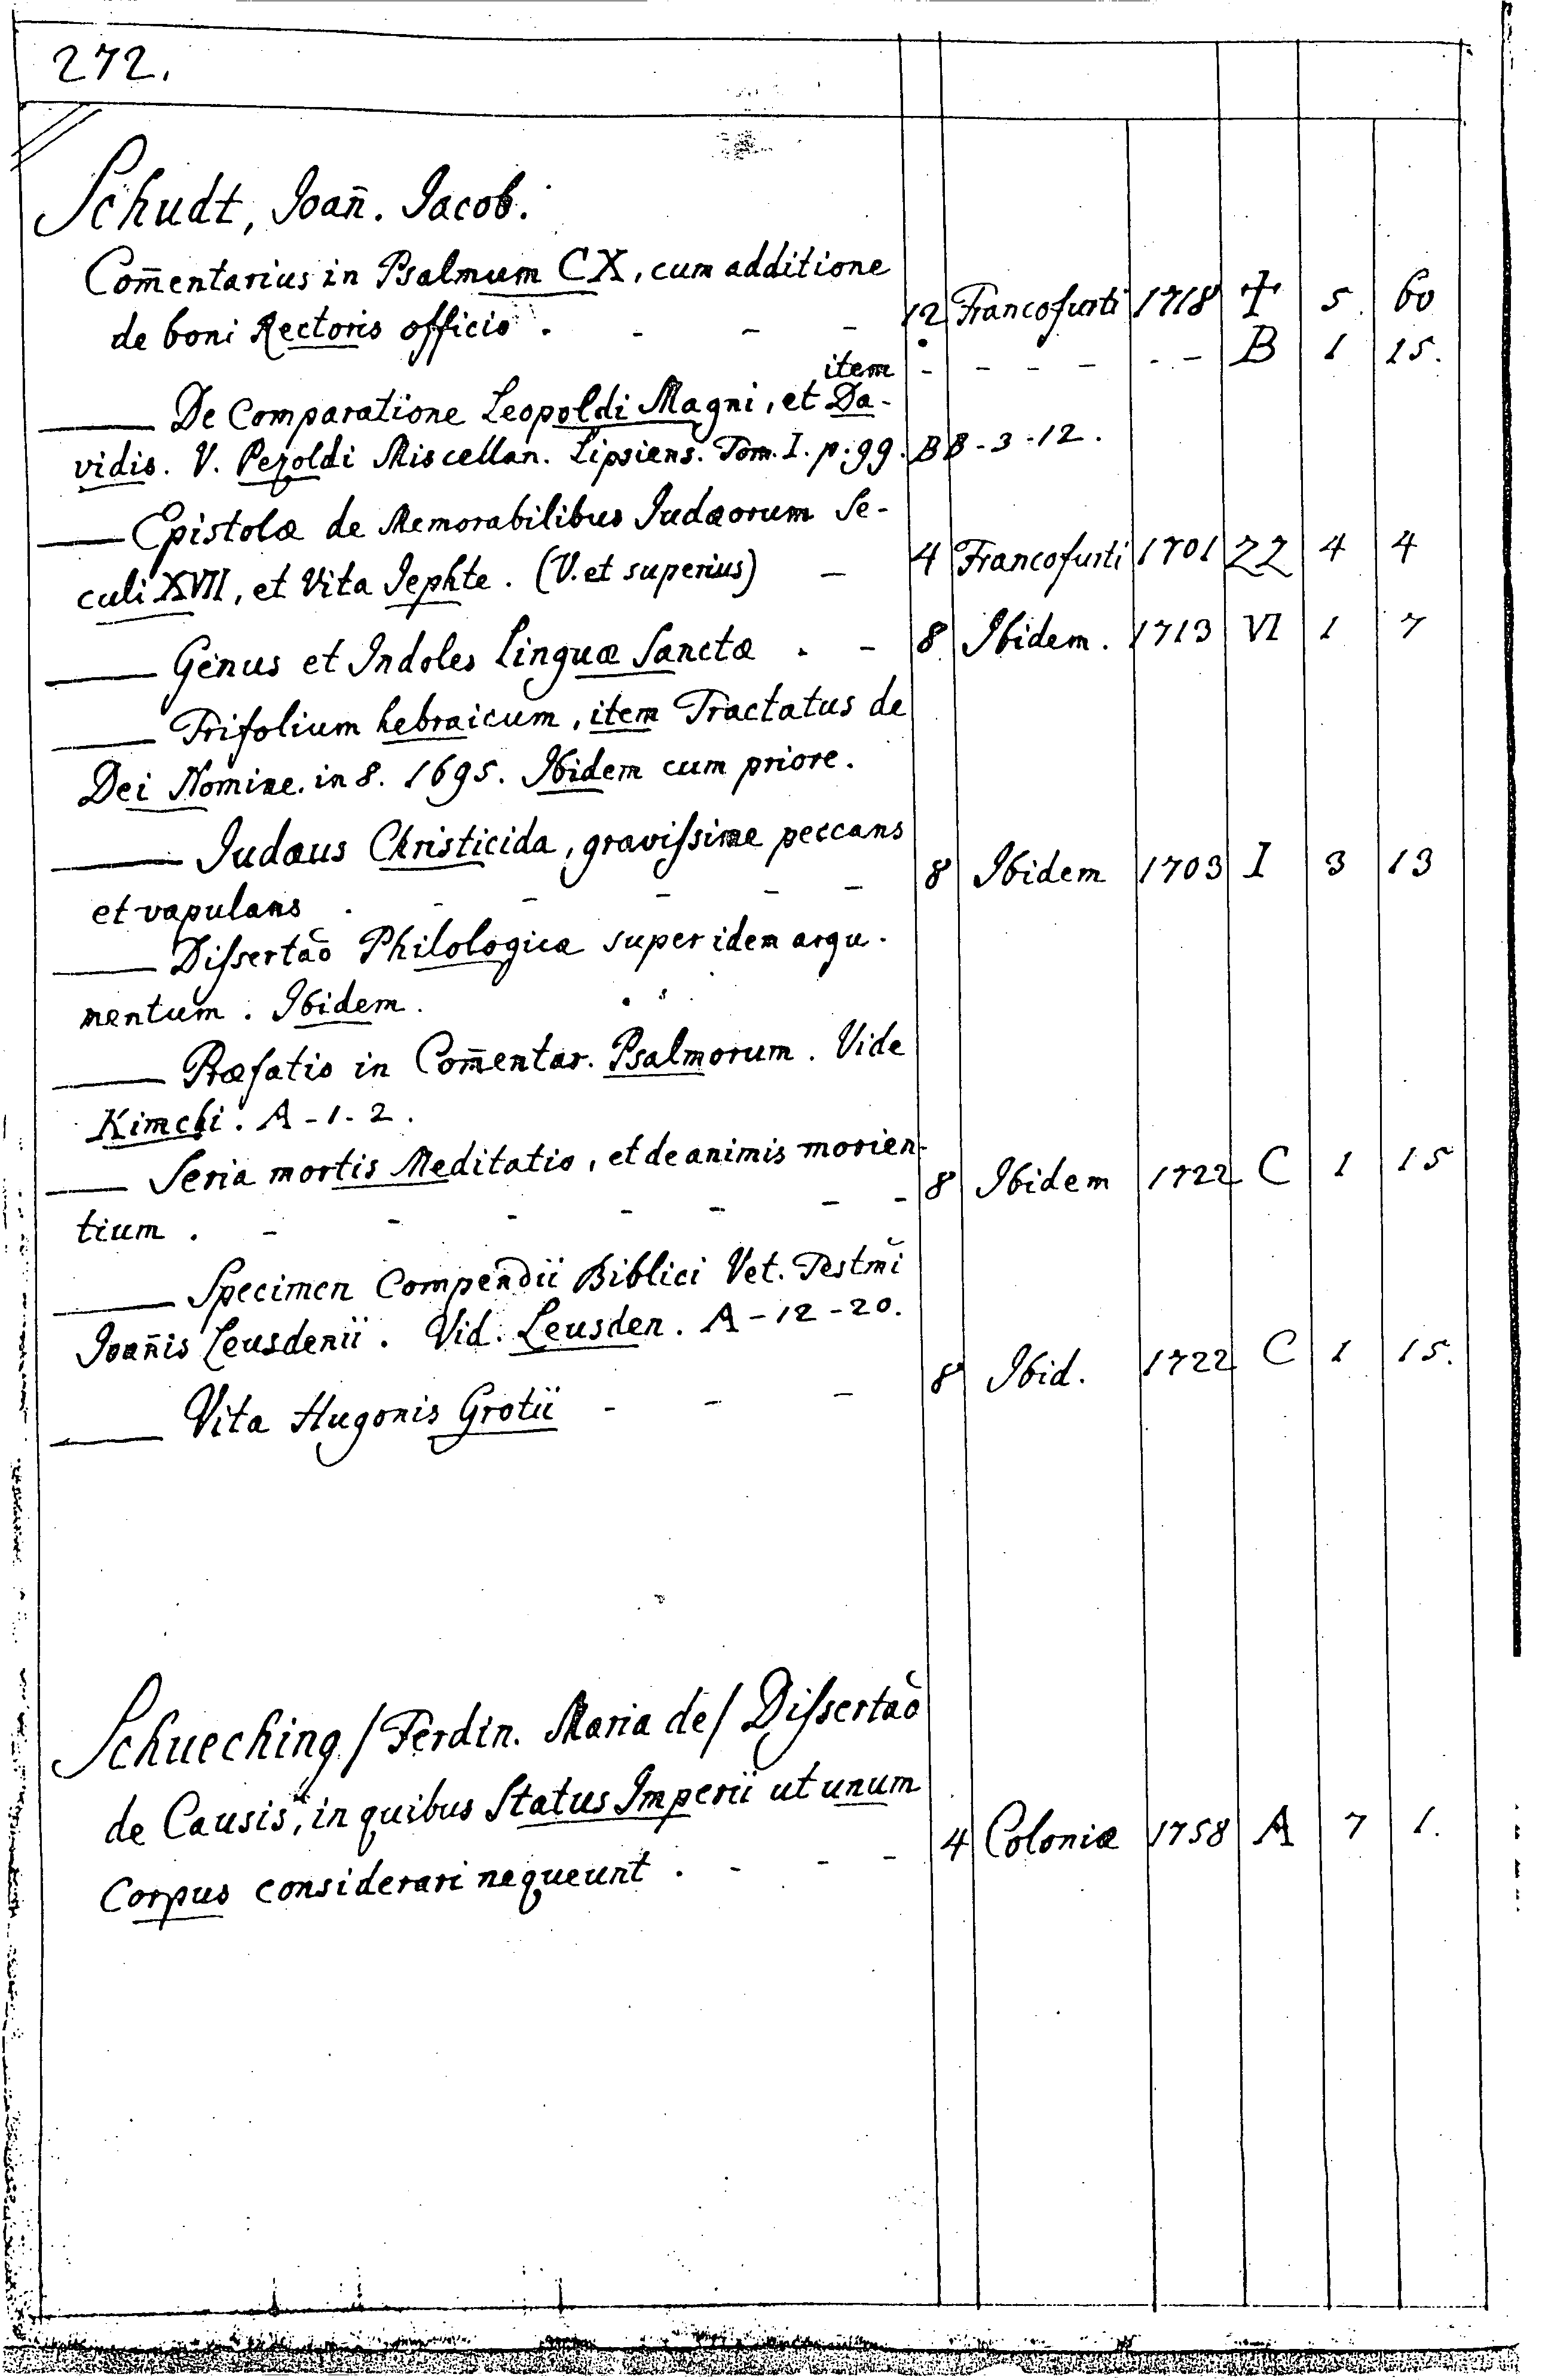 272.
Schudt, Ioan̄. Iacob.
Com̄entarius in Psalmum CX, cum additione
de boni Rectoris officio . - - - 12 Francofurti 1718 ✝ 5 60
item - - - - - - B 1 15.
—— De Comparatione Leopoldi Magni, et Da-
vidis. V. Pezoldi Miscellan. Lipsiens. Tom. I. p. 99. BB - 3 - 12.
—— Epistolæ de Memorabilibus Judæorum Se-
culi XVII, et Vita Jephte. (V. et superius) - 4 Francofurti 1701 ZZ 4 4
—— Genus et Indoles Linguæ Sanctæ . - 8 Ibidem. 1713 VI 1 7
—— Trifolium hebraicum, item Tractatus de
Dei Nomine. in 8. 1695. Ibidem cum priore.
—— Judæus Christicida, gravissime peccans
et vapulans . - - - - - 8 Ibidem 1703 I 3 13
—— Dissertaõ Philologica super idem argu-
mentum. Ibidem.
—— Præfatio in Com̄entar. Psalmorum. Vide
Kimchi. A - 1 - 2.
—— Seria mortis Meditatio, et de animis morien-
tium . - - - - - - - 8 Ibidem 1722 C 1 15
—— Specimen Compendii Biblici Vet. Testm̃i
Ioan̄is Leusdenii. Vid. Leusden. A - 12 - 20.
—— Vita Hugonis Grotii - - - 8 Ibid. 1722 C 1 15.
Schueching / Ferdin. Maria de / Dissertaõ
de Causis, in quibus Status Imperii ut unum
Corpus considerari nequeunt . - - - 4 Coloniæ 1758 A 7 1.